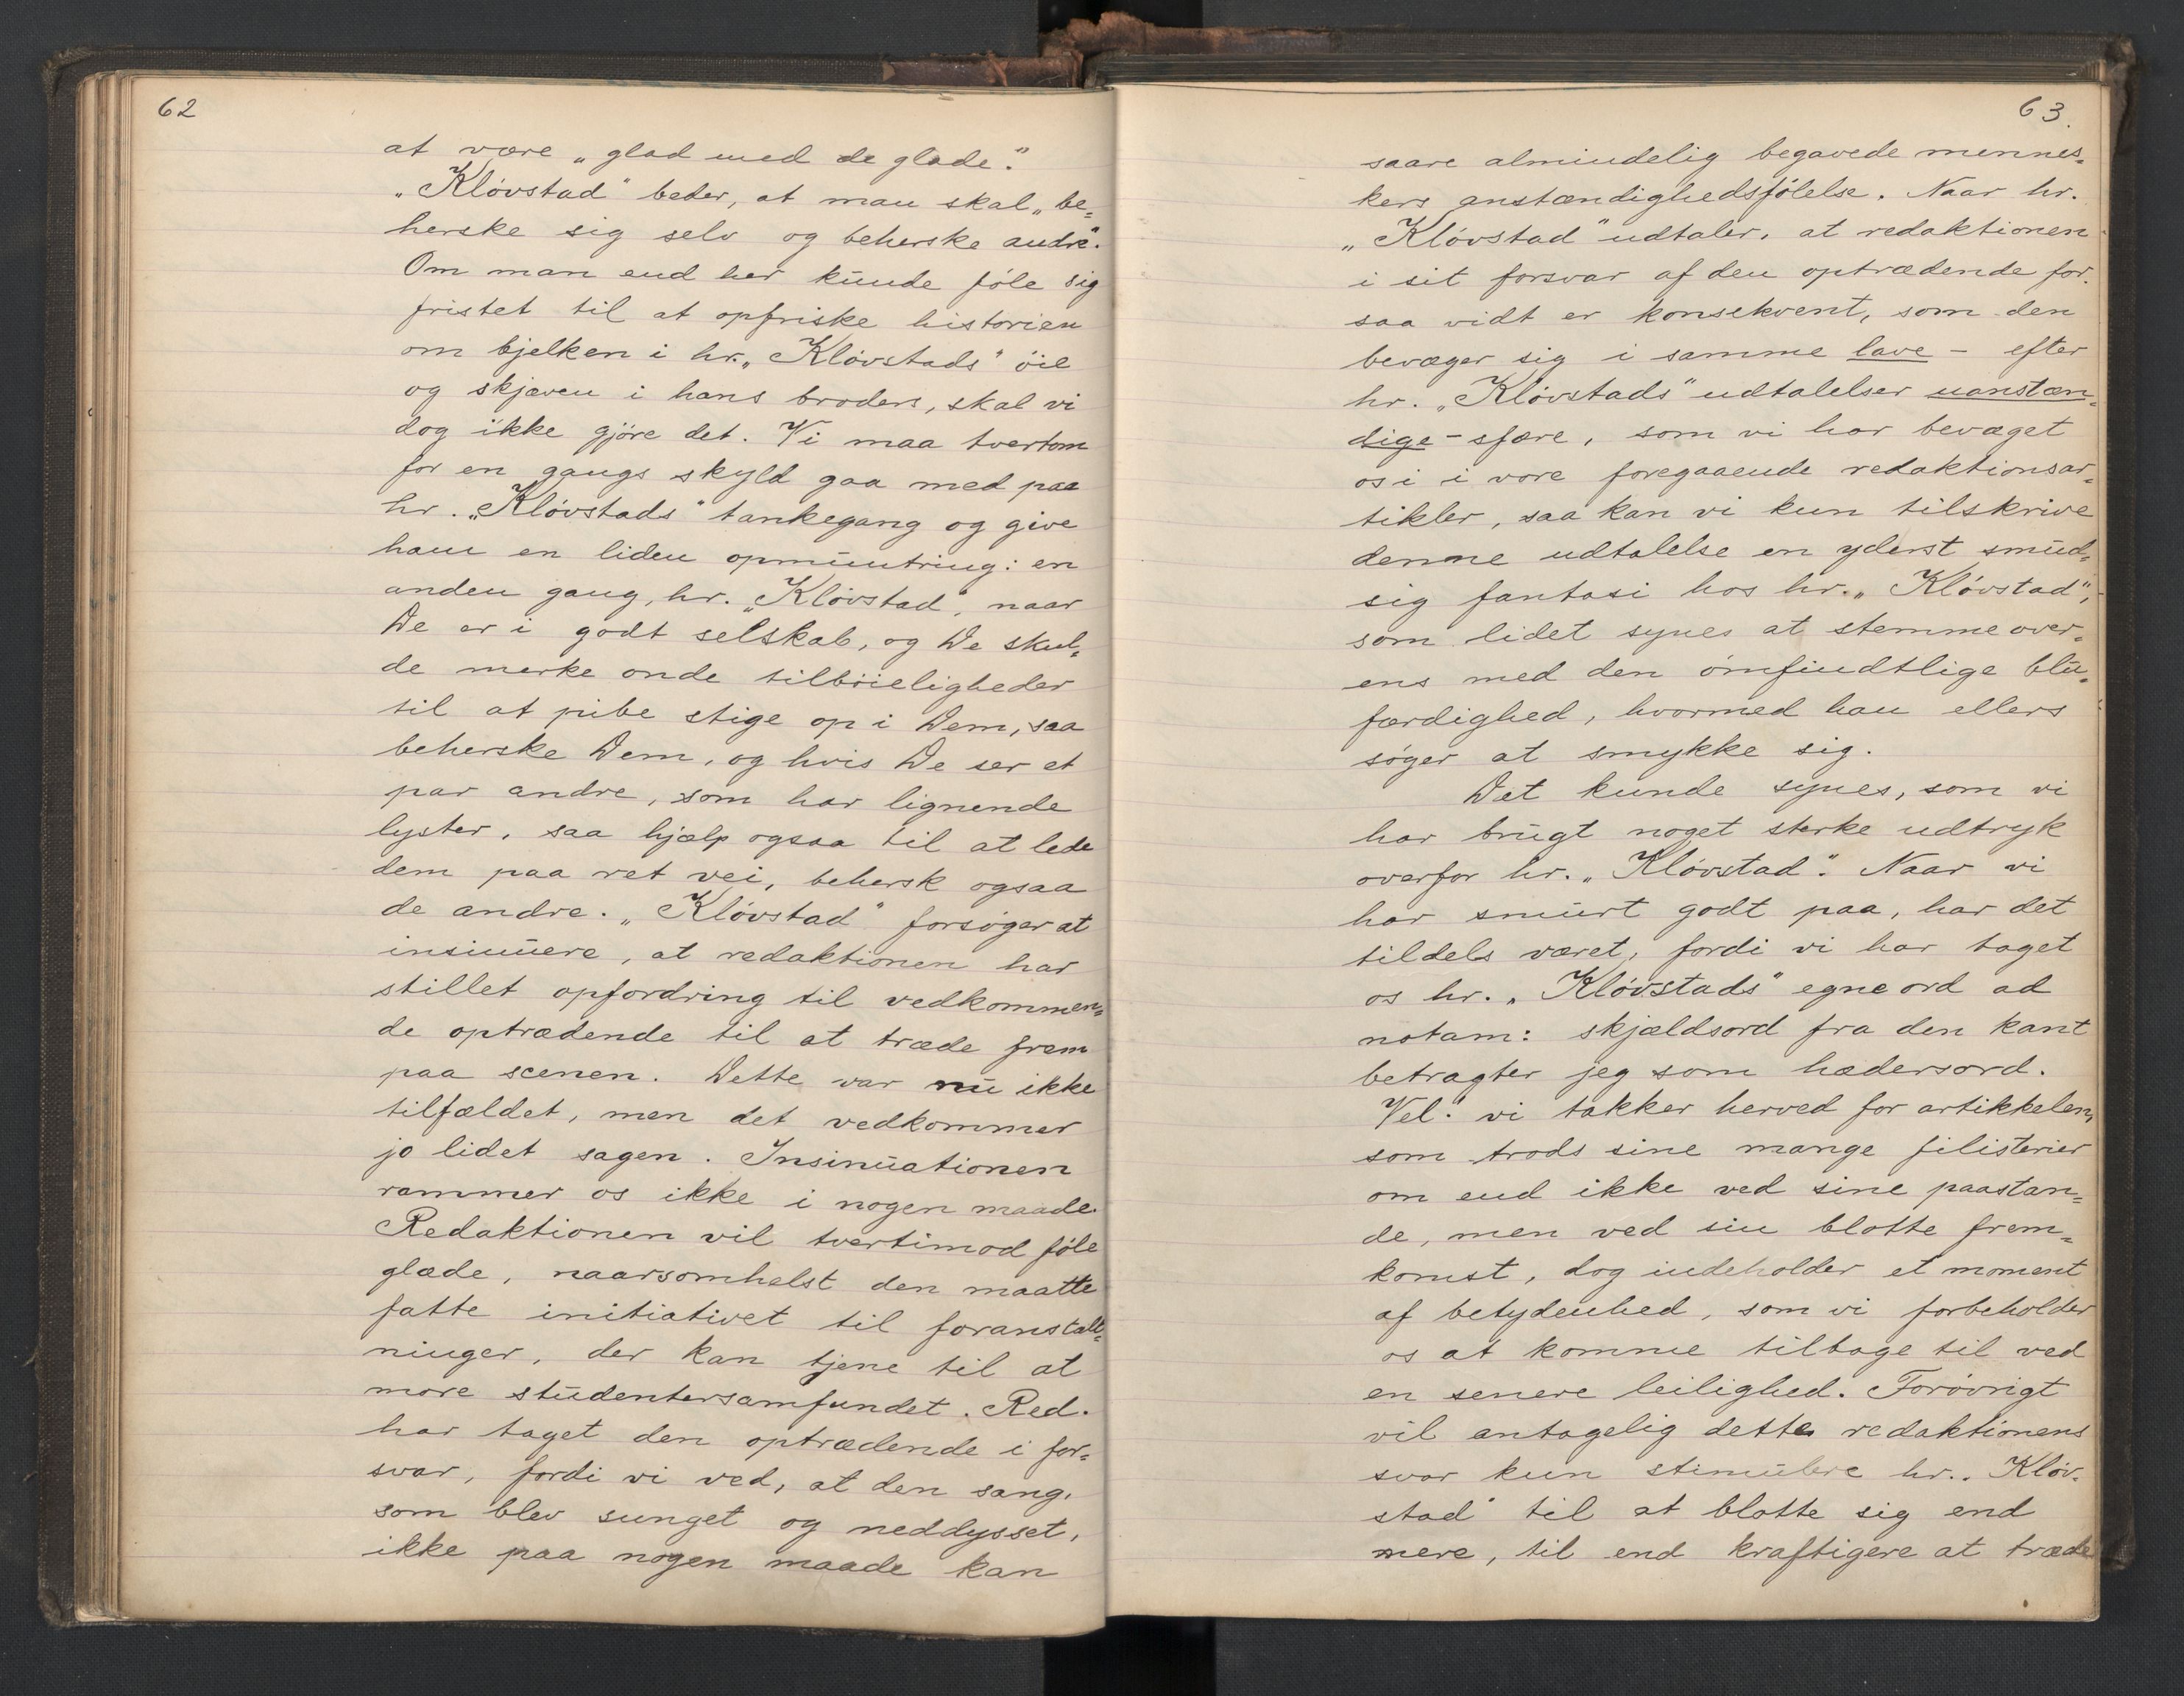 62
at være „glad med de glade".
„Klövstad" beder, at man skal „be-
herske sig selv og beherske andre".
Om man end her kunde föle sig
fristet til at opfriske historien
om bjelken i hr. „Klövstads" öie
og skjæven i hans broders, skal vi
dog ikke gjöre det. Vi maa tvertom
for en gangs skyld gaa med paa
hr. „Klövstads" tankegang og give
ham en liden opmuntring: en
anden gang, hr. „Klövstad", naar
De er i godt selskab, og De skul-
de merke onde tilböieligheder
til at pibe stige op i Dem, saa
beherske Dem, og hvis De ser et
par andre, som har lignende
lyster, saa hjælp ogsaa til at lede
dem paa ret vei, behersk ogsaa
de andre. „Klövstad" forsöger at
insinuere, at redaktionen har
stillet opfordring til vedkommen-
de optrædende til at træde frem
paa scenen. Dette var nu ikke
tilfældet, men det vedkommer
jo lidet sagen. Insinuationen
rammer os ikke i nogen maade.
Redaktionen vil tvertimod föle
glæde, naarsomhelst den maatte
fatte initiativet til foranstalt-
ninger, der kan tjene til at
more studentersamfundet. Red.
har taget den optrædende i for-
svar, fordi vi ved, at den sang,
som blev sunget og neddysset,
ikke paa nogen maade kan
63.
saare almindelig begavede mennes-
kers anstændighedsfölelse. Naar hr.
„Klövstad" udtaler, at redaktionen
i sit forsvar af den optrædende for-
saa vidt er konsekvent, som den
bevæger sig i samme lave - efter
hr. „Klövstads" udtalelser uanstæn-
dige - sfære, som vi har bevæget
os i i vore foregaaende redaktionsar-
tikler, saa kan vi kun tilskrive
denne udtalelse en yderst smud-
sig fantasi hos hr. „Klövstad",
som lidet synes at stemme over-
ens med den ömfindtlige blu-
færdighed, hvormed han ellers
söger at smykke sig.
Det kunde synes, som vi
har brugt noget sterke udtryk
overfor hr. „Klövstad". Naar vi
har smurt godt paa, har det
tildels været, fordi vi har taget
os hr. „Klövstads" egne ord ad
notam: skjældsord fra den kant
betragter jeg som hædersord.
Vel! vi takker herved for artikkelen,
som trods sine mange filisterier
om end ikke ved sine paastan-
de, men ved sin blotte frem-
komst, dog indeholder et moment
af betydenhed, som vi forbeholder
os at komme tilbage til ved
en senere leilighed. Forövrigt
vil antagelig dette redaktionens
svar kun stimulere hr. „Klöv-
stad" til at blotte sig end
mere, til end kraftigere at træde